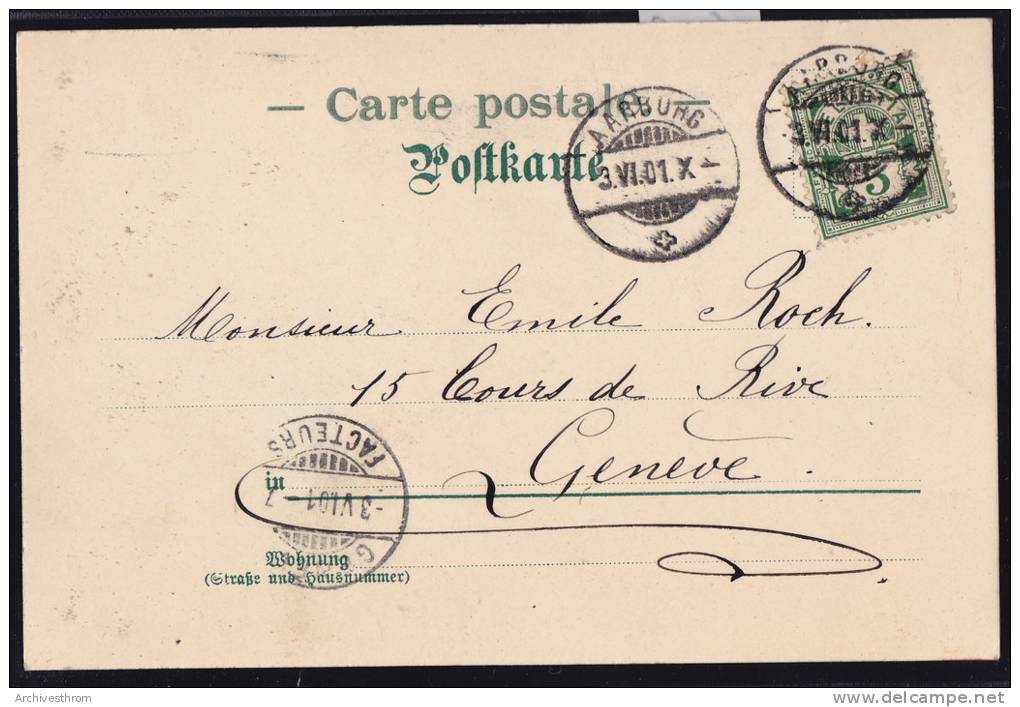 — Carte postale —
Postkarte
AARBURG
3.VI.01.X
AARBURG
3.VI.01.X
5
Monsieur Emile Roch.
15 Cours de Rive
Genève.
in
FACTEURS
-3 VI.01-7
Wohnung
(Straße und Hausnummer)
Archivesthrom
www.delcampe.net